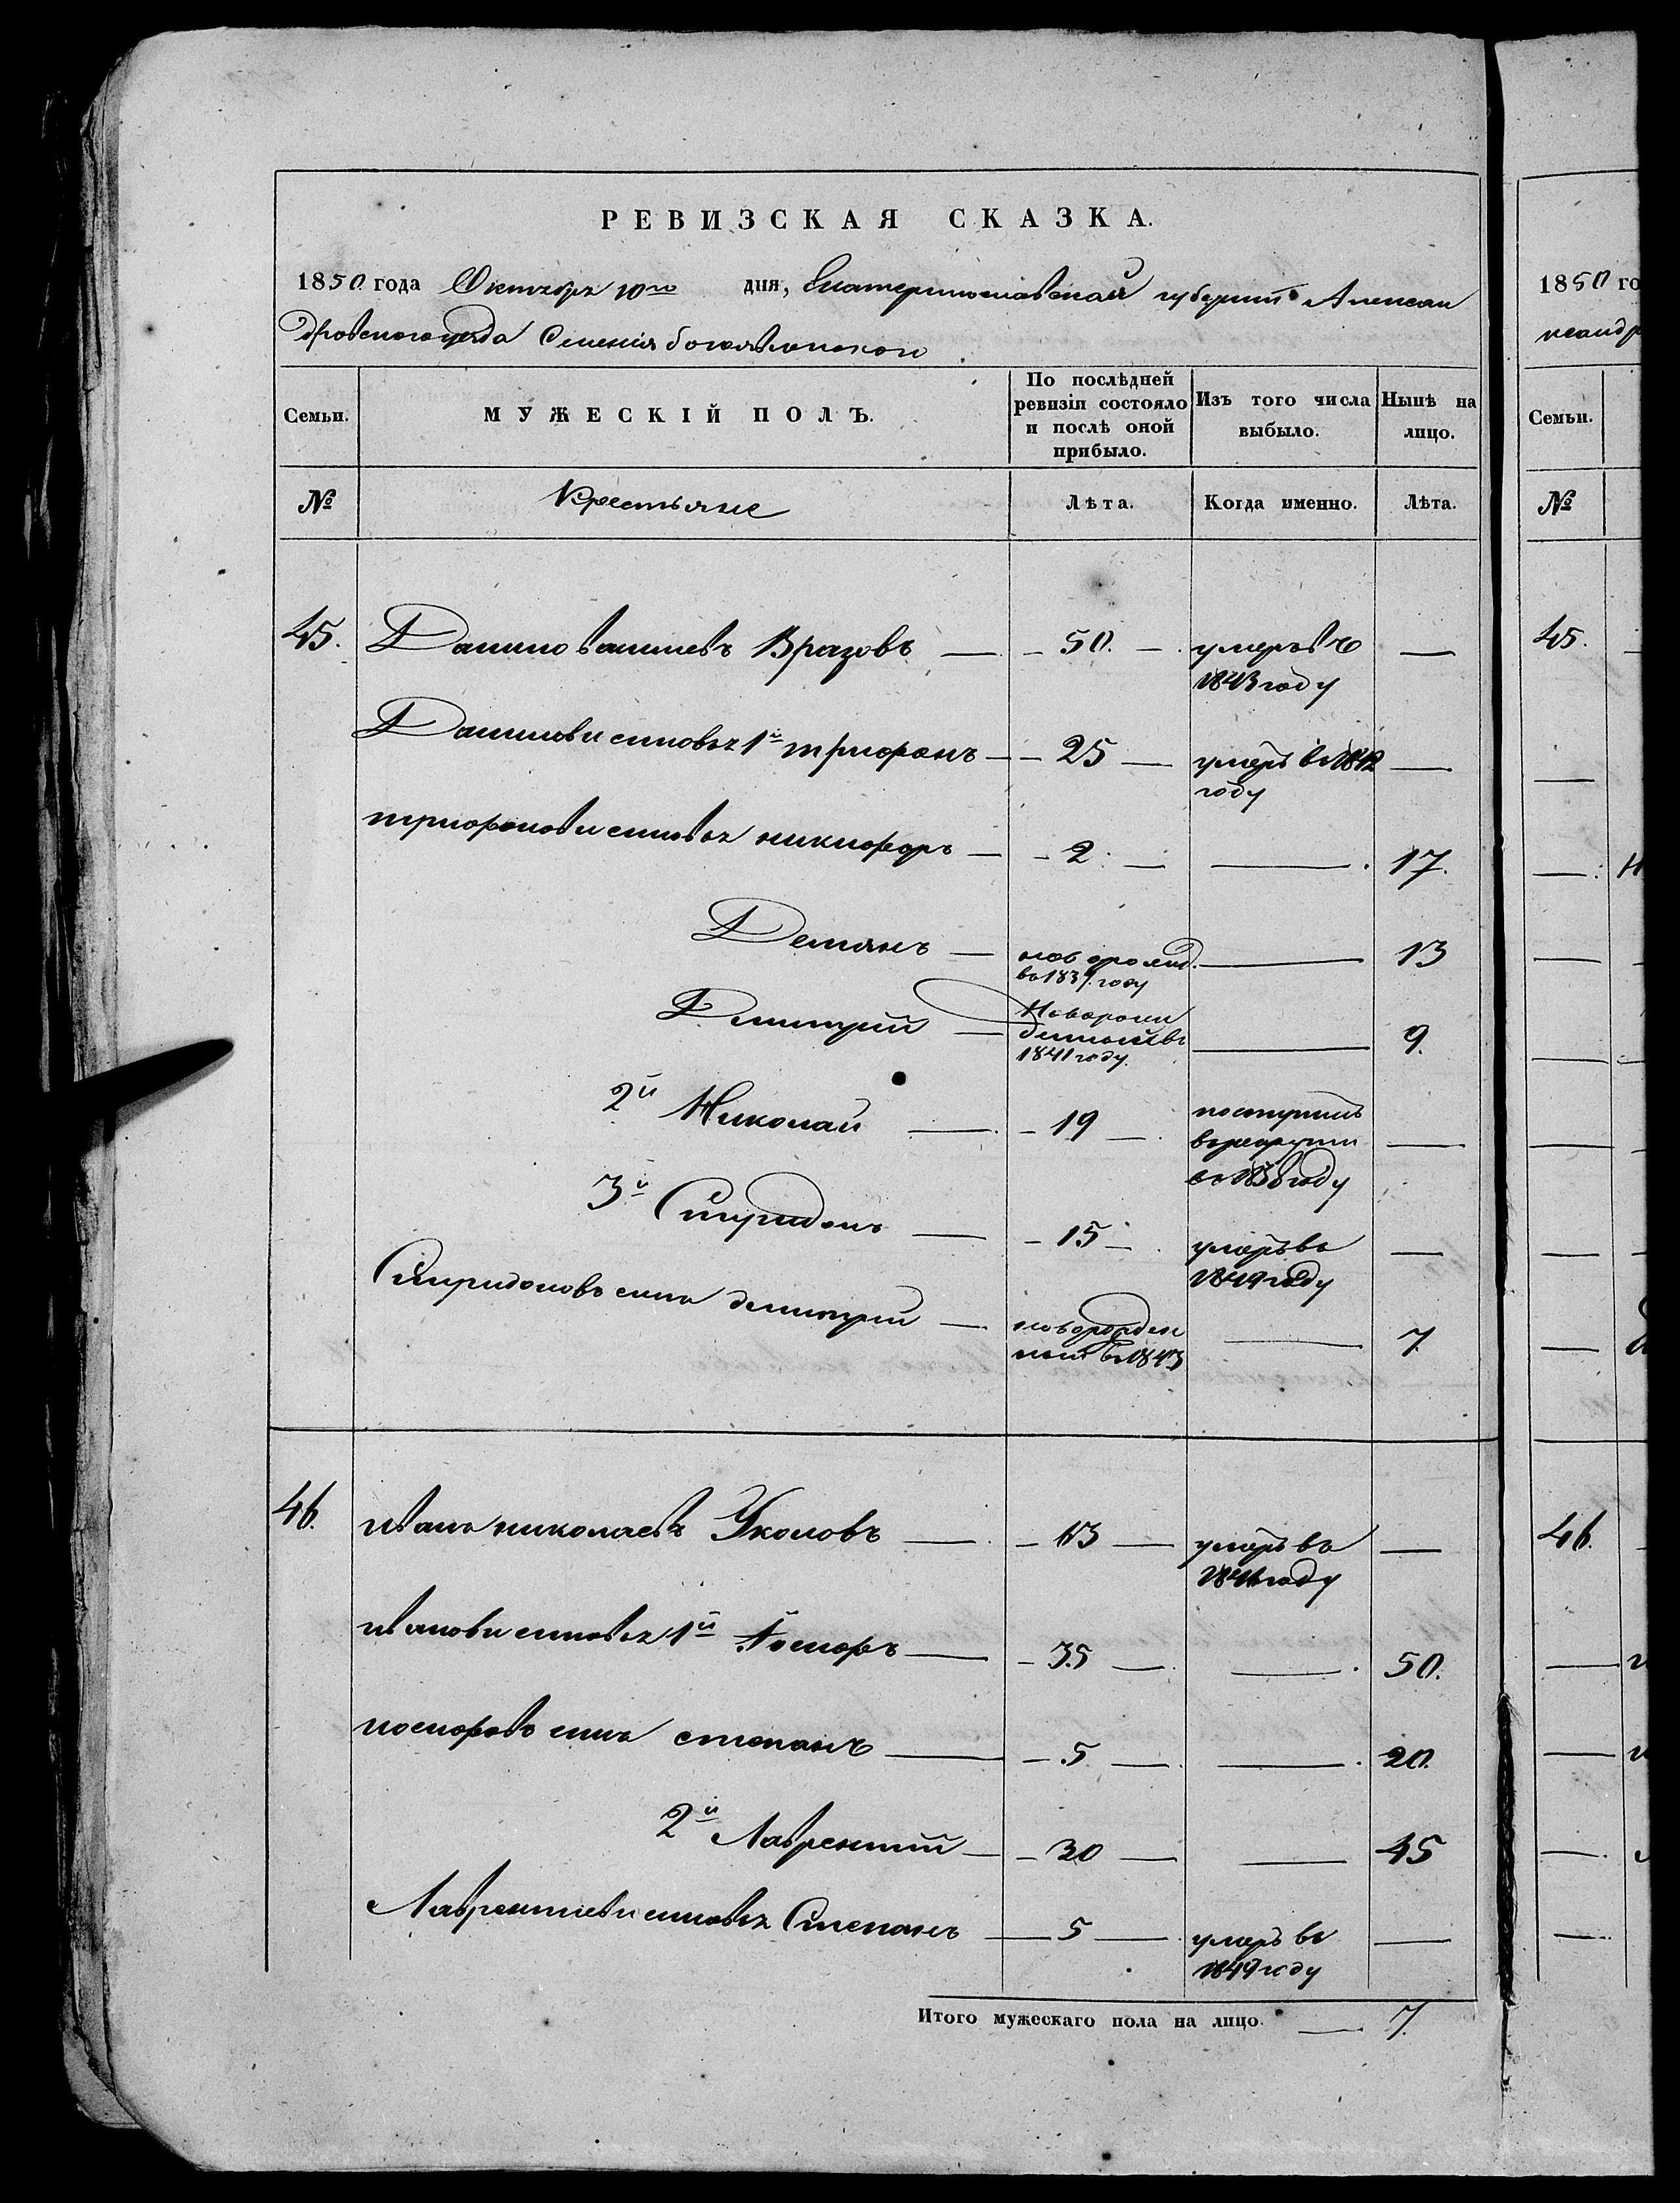 РЕВИЗСКАЯ СКАЗКА.
1850 года Октября 10го дня, Екатеринославской губернии Алексан
дровского уезда Селения богоявленского
Семьи. МУЖЕСКІЙ ПОЛЪ. По послѣдней ревизіи состояло и послѣ оной прибыло. Изъ того числа выбыло. Нынѣ на лицо.
№ Крестьяне Лѣта. Когда именно. Лѣта.
45. Данило Вразовъ — 50. — умеръ въ 1843 году —
Данилови сыновья 1й трифонъ — 25 — умеръ въ 1842 году —
трифонови сыновья никифоръ — 2 — — 17.
Демянъ — новорожд. въ 1837 году — 13
Дмитрий — Новорожденный въ 1841 году. — 9.
2й Николай — 19 — поступилъ в рекруты въ 1838 году —
3й Спиридонъ — 15 — умеръ въ 1849 году —
Спиридоновъ сынъ дмитрий — новорожденный въ 1843 — 7
46. иванъ николаевъ Уколовъ — 63 — умеръ въ году —
иванови сыновья 1й — 35 — — 50.
сынъ степанъ — 5 — — 20.
2й Лаврентий — 30 — — 45
Лаврентиеви сыновья Степанъ — 5 — умеръ въ 1849 году —
Итого мужескаго пола на лицо. — 7.
1850 го
ксандр
Семьи.
№
45.
46.